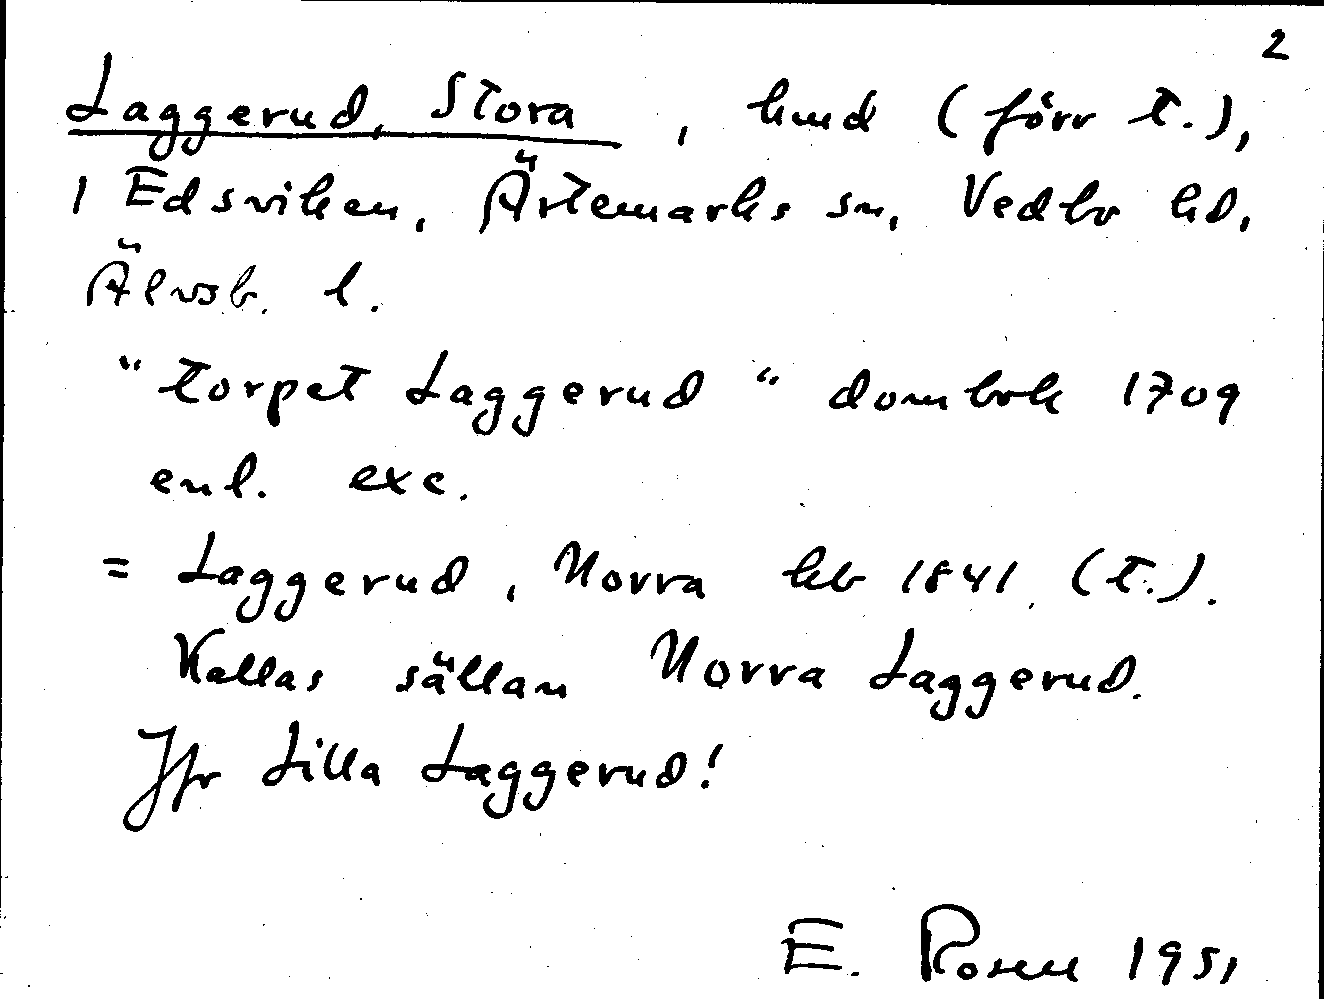 2
Laggerud, Stora, hmd (förr t.),
1 Edsviken, Ärtemarks sn, Vedbo hd,
Älvsb. l.
"torpet Laggerud" dombok 1709
enl. exc.
= Laggerud, Norra hb 1841 (t.).
Kallas sällan Norra Laggerud.
Jfr Lilla Laggerud!
E. Rosen 1951